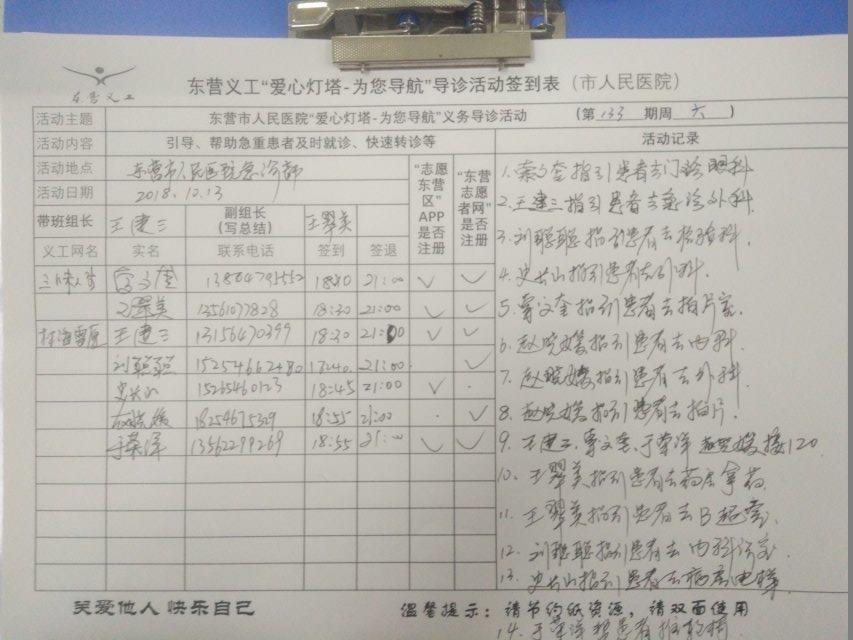 东营义工
东营义工“爱心灯塔-为您导航”导诊活动签到表（市人民医院）
活动主题 东营市人民医院“爱心灯塔-为您导航”义务导诊活动 （第 133 期周 六 ）
活动内容 引导、帮助急重患者及时就诊、快速转诊等 活动记录
活动地点 东营市人民医院急诊部
活动日期 2018.12.13
“志愿东营区”APP是否注册
“东营志愿者网”是否注册
带班组长 王建三 副组长（写总结） 王翠美
义工网名 实名 联系电话 签到 签退
21:00
王翠美 13561077828 18:30 21:00
林海雪原 王建三 13156470399 18:30 21:00
刘聪聪 15254662480 21:00
史长山 15265460123 18:45 21:00
18254675329 18:55 21:00
于荣泽 13562299269 18:55 21:00
1. 指引患者去门诊眼科
2. 王建三指引患者去急诊外科.
3. 刘聪聪指引患者去检验科.
4. 史长山指引患者去外科.
5. 曹文奎指引患者去拍片室.
6. 赵晓嫒指引患者去内科.
7. 赵晓嫒指引患者去外科.
8. 赵晓嫒指引患者去拍片.
9. 王建三.曹文奎.于荣泽 赵晓嫒接120.
10. 王翠美指引患者去药房拿药.
11. 王翠美指引患者去B超室.
12. 刘聪聪指引患者去内科诊室.
13. 史长山指引患者去病房电梯
14. 于荣泽帮患者推轮椅
关爱他人 快乐自己 温馨提示：请节约纸资源，请双面使用